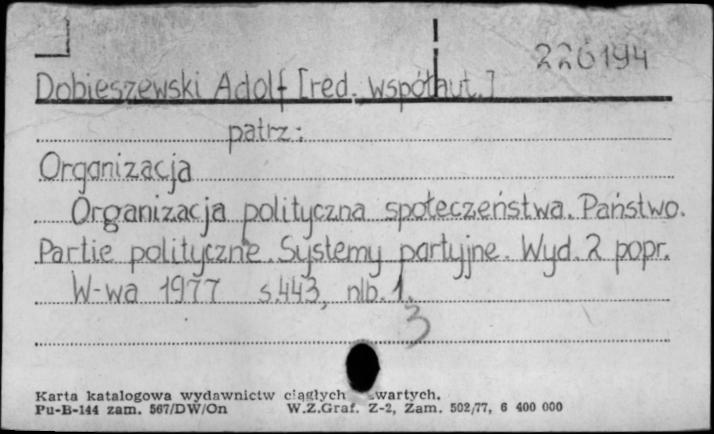 226194
Dobieszewski Adolf [red. współaut.]
patrz:
Organizacja
Organizacja polityczna społeczeństwa. Państwo.
Partie polityczne. Systemy partyjne. Wyd. 2 popr.
W-wa 1977 s.443, nlb. 1.
3
Karta katalogowa wydawnictw ciągłych wartych.
Pu-B-144 zam. 567/DW/On W.Z.Graf. Z-2, Zam. 502/77, 6 400 000